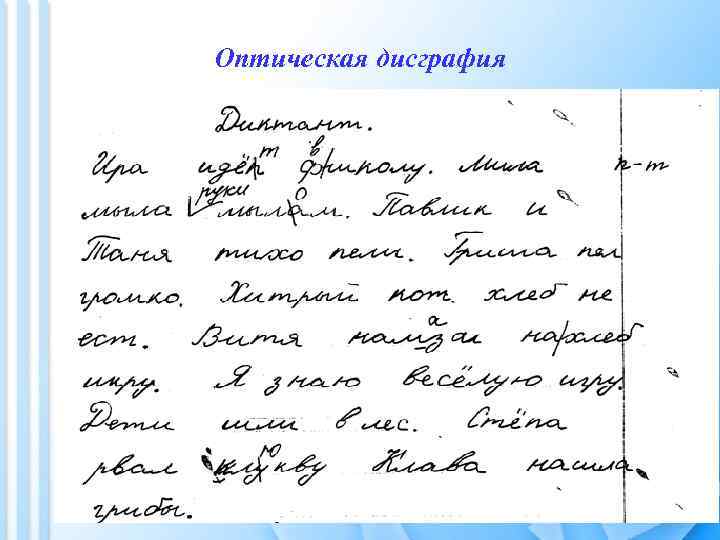 Оптическая дисграфия
Диктант.
т в
Ира идёп фшколу. Мила п-т
руки о
мыла мылам. Павлик и
Таня тихо пели. Гриша пел
громко. Хитрый кот хлеб не
а
ест. Витя намзал нахлеб
икру. Я знаю весёлую игру.
Дети шли в лес. Стёпа
ю
рвал клукву Клава нашла
грибы.